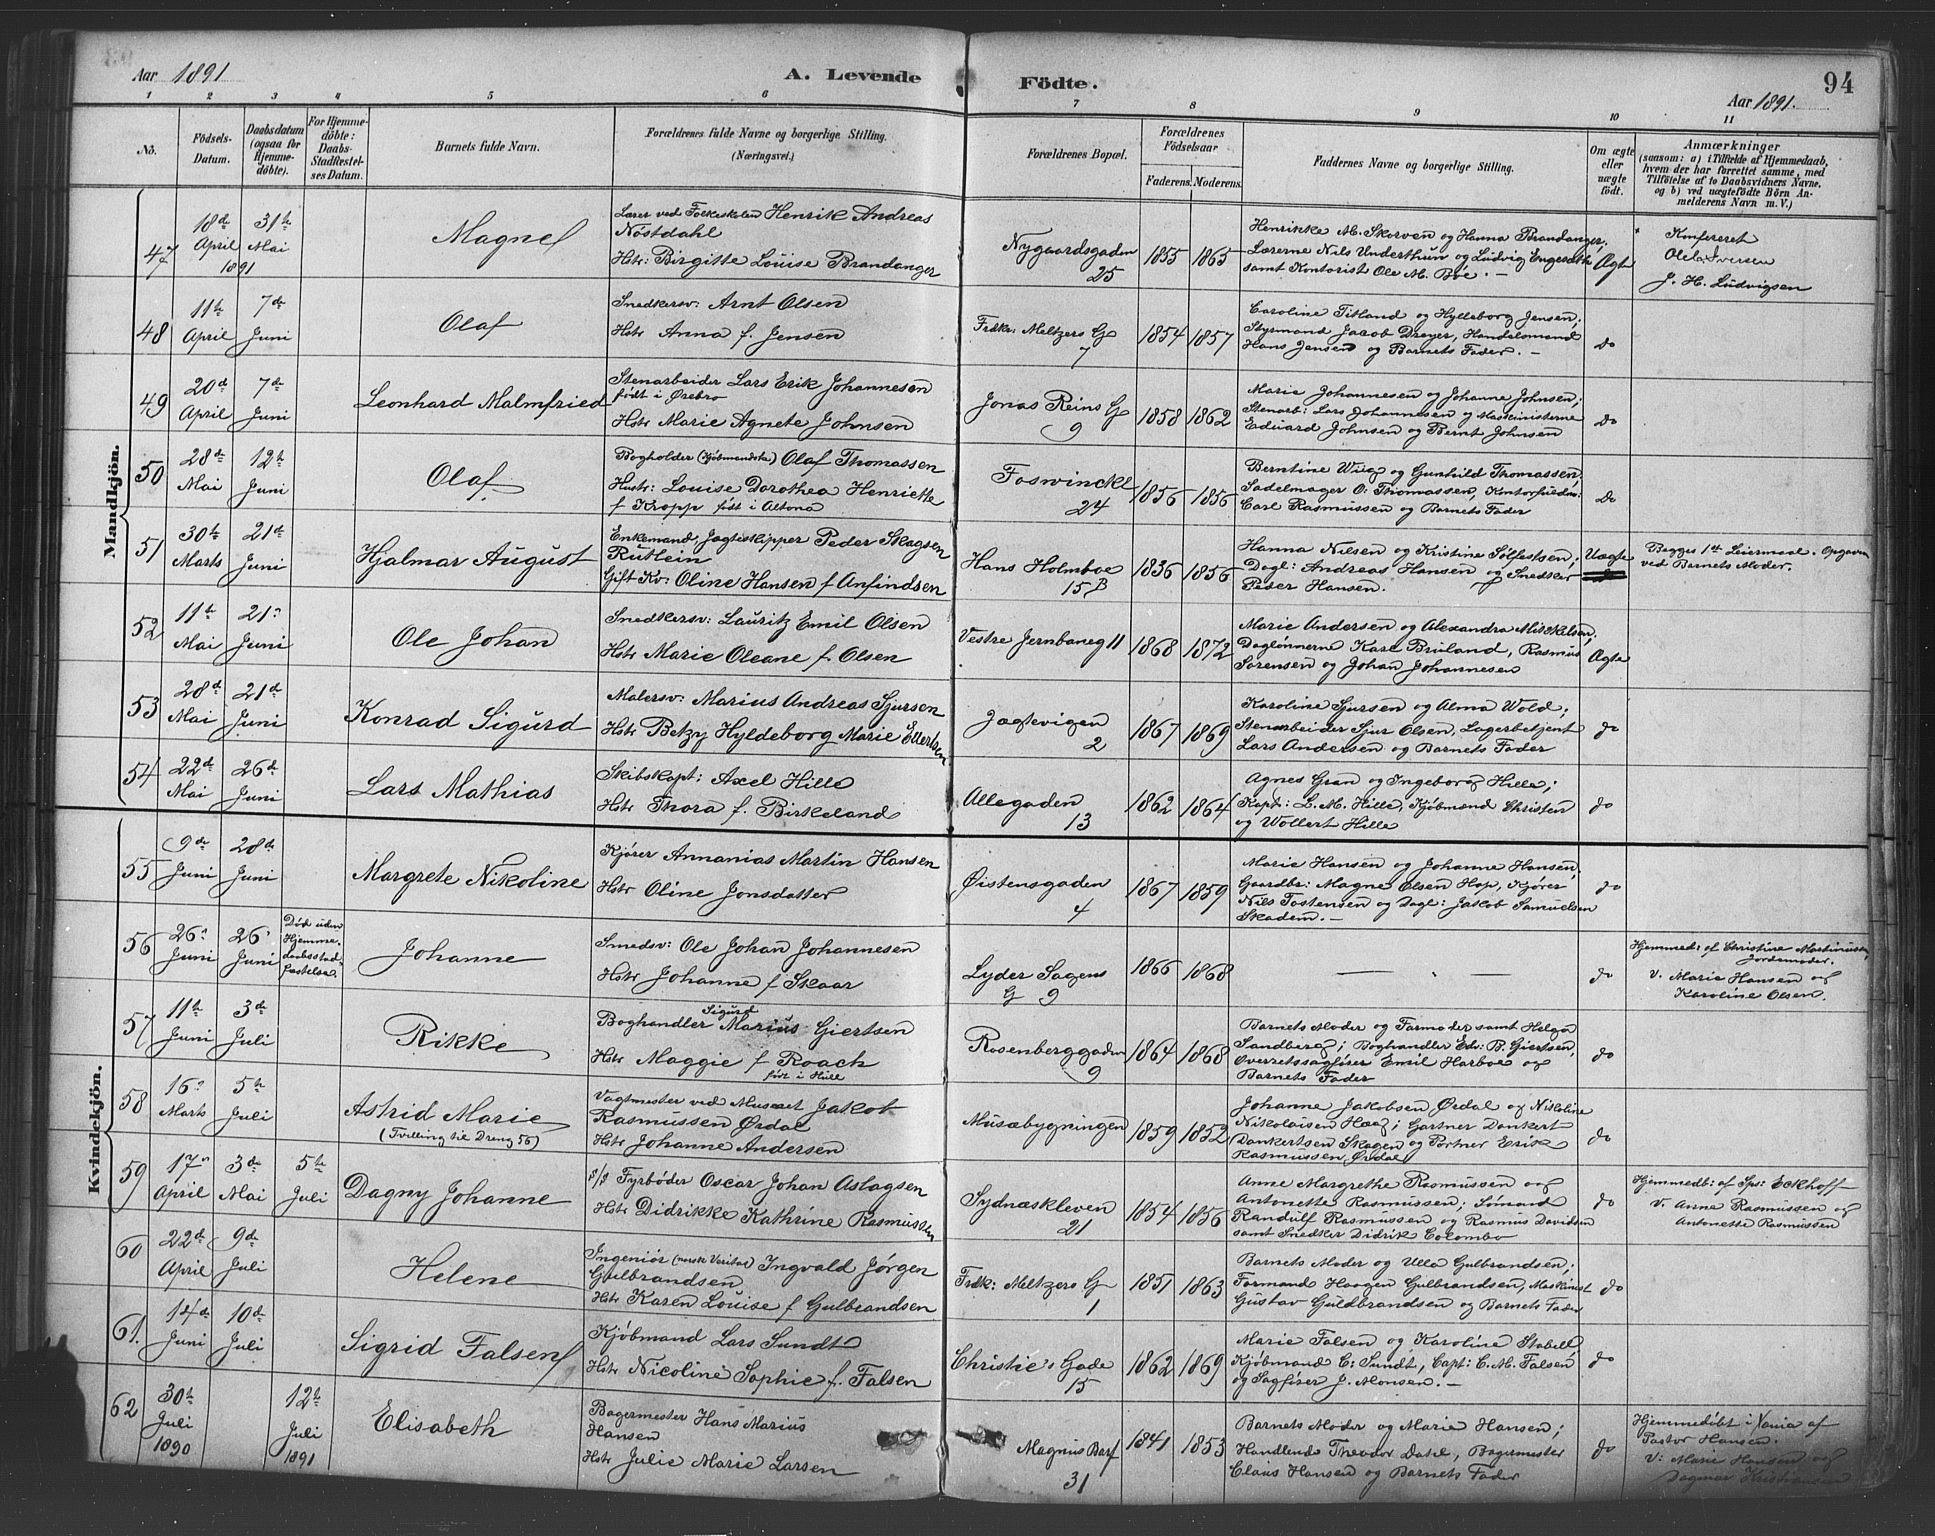 Aar 1891 A. Levende Födte. Aar 1891. 94
1 2 3 4 5 6 7 8 9 10 11
No. Födsels-Datum. Daabsdatum (ogsaa for Hjemme-döbte). For Hjemme-döbte: Daabs-Stadfæstel-ses Datum. Barnets fulde Navn. Forældrenes fulde Navne og borgerlige Stilling. (Næringsvei.) Forældrenes Bopæl. Forældrenes Födselsaar Faderens. Moderens. Faddernes Navne og borgerlige Stilling. Om ægte eller uægte födt. Anmærkninger (saasom: a) i Tilfælde af Hjemmedaab, hvem der har forrettet samme, med Tilföielse af to Daabsvidners Navne, og b) ved uægtefödte Börn An-melderens Navn m. V.)
Mandkjön.
47 18de April 1891 31te Mai
Magne
Lærer ved Folkeskolen Henrik Andreas
Nöstdahl
Hstr: Birgitte Louise Brandanger
Nygaardsgaden
25
1855 1865
Henrikke M. Skorven og Hanna Brandanger,
Lærerne Nils Underthun og Ludvig Engesæth
samt Kontorist Ole M. Böe. —
Ægt
Konfereret
Ole Iversen
J. H. Ludvigsen
48 11te April 7de Juni
Olaf
Snedkersv: Arnt Olsen
Hstr Anna f. Jensen
Fredr: Meltzers G
7
1854 1857
Caroline Titland og Hylleborg Jensen;
Styrmand Jacob Dreyer, Handelsmand
Hans Jensen og Barnets Fader. —
do
49 20de April 7de Juni
Leonhard Malmfried
Stenarbeider Lars Erik Johannesen
født i Ørebro
Hstr Marie Agnete Johnsen
Jonas Reins G
9
1858 1862
Marie Johannesen og Johanne Johnsen;
Stenarb: Lars Johannesen og Masskinisterne
Eduard Johnsen og Bernt Johnsen
do
50 28de Mai 12te Juni
Olaf
Bogholder (Kjöbmandska) Olaf Thomassen
Hustr: Louise Dorothea Henriette
f Kropp født i Altona
Foswinckl
24
1856 1856
Berntine Wug og Gunhild Thomassen,
Sadelmager O: Thomassen, Kontorfuldm:
Carl Rasmussen og Barnets Fader
do
51 30te Marts 21de Juni
Hjalmar August
Enkemand, Jagteskipper Peder Skagsen
Rutlein
Gift Ko: Oline Hansen f Anfindsen
Hans Holmboe
15 B
1836 1856
Hanna Nilsen og Kristine Sölfestsen;
Dagl: Andreas Hansen og Snedker
Peder Hansen.
Uægte
Begges 1ste Leiermaal. Opgaven
ved Barnets Moder.
52 11te Mai 21" Juni
Ole Johan
Snedkersv: Lauritz Emil Olsen
Hstr Marie Oleane f. Olsen
Vestre Jernbaneg 11
1868 1872
Marie Andersen og Alexandra Mikkelsen;
Daglønnerne Kase Bruland, Rasmus
Sørensen og Johan Johannesen
Ægte
53 28de Mai 21de Juni
Konrad Sigurd
Malersv: Marius Andreas Sjursen
Hstr Betzy Hyldeborg Marie Ellertsen
Jagtevigen
2
1867 1869
Karoline Sjursen og Alma Wold;
Stenarbeider Sjur Olsen, Lagerbetjent
Lars Andersen og Barnets Fader
do
54 22de Mai 26de Juni
Lars Mathias
Skibskapt: Axel Hille
Hstr Thora f. Birkeland
Allegaden
13
1862 1864
Agnes Gran og Ingeborg Hille;
Kapt: L. M. Hille, Kjöbmænd Christen
og Wollert Hille
do
Kvindekjön.
55 9de Juni 28de Juni
Margrete Nikoline
Kjører Annanias Martin Hansen
Hstr Oline Jonsdatter
Øistensgaden
4
1867 1859
Marie Hansen og Johanne Hansen,
Gaardbr: Magne Olsen Hop, Kjører
Nils Tostensen og Dagl: Jakob Samuelsen
Skadem. —
do
56 26" Juni 26" Juni
Död uden
Hjemme-
daabsstad-
fæstelse.
Johanne
Smedsv: Ole Johan Johannesen
Hstr Johanne f Skaar
Lyder Sagens
G 9
1866 1868
— " —
do
Hjemmed: af Christine Martinussen
Jordemoder.
v. Marie Hansen og
Karoline Olsen.
57 11te Juni 3de Juli
Rikke
Sigurd
Boghandler Marius Giertsen
Hstr Maggie f Roach
født i Hull
Rosenberggaden
9
1864 1868
Barnets Moder og Farmoder samt Helga
Sandberg; Boghandler Edv: B. Giertsen,
Overretssagfører Emil Harboe og
Barnets Fader
do
58 16" Marts 5te Juli
Astrid Marie
(Tvilling til Dreng 56)
Vagtmester ved Museet Jakob
Rasmussen Ørdal
Hstr Johanne Andersen
Musæbygningen
1859 1852
Johanne Jakobsen Ørdal og Nikoline
Nikolaisen Haag; Gartner Dankert
Dankertsen Skagen og Portner Erik
Rasmussen Ørdal
do
59 17" April 3de Mai 5te Juli
Dagny Johanne
s/s Fyrbøder Oscar Johan Aslagsen
Hstr Didrikke Kathrine Rasmussen
Sydnæskleven
21
1854 1856
Anne Margrethe Rasmussen og
Antonette Rasmussen; Sømænd
Randulf Rasmussen og Rasmus Davidsen
samt Snedker Didrik Colombo
do
Hjemmedb: af Sps: Eckhoff
v. Anne Rasmussen og
Antonette Rasmussen
60 22de April 9de Juli
Helene
Ingeniør (norsk Veritas) Ingvald Jørgen
Gulbrandsen
Hstr Karen Louise f Gulbrandsen
Fredk: Meltzers G
1
1851 1863
Barnets Moder og Ulla Gulbrandsen;
Formand Haagen Gulbrandsen, Maskinist
Gustav Guldbrandsen og Barnets Fader
do
61. 14de Juni 10de Juli
Sigrid Falsen
Kjøbmand Lars Sundt
Hstr Nicoline Sophie f. Falsen
Christie's Gade
15
1862 1869
Marie Falsen og Karoline Stabell,
Kjöbmand C: Sundt, Capt: C. M. Falsen
og Sagfører J. Monsen. —
do
62 30te Juli 1890 12te Juli 1891
Elisabeth
Bagermester Hans Marius
Hansen
Hstr Julie Marie Larsen
Magnus Barf
31
1841 1853
Barnets Moder og Marie Hansen;
Handlende Theodor Dahl, Bagermester
Claus Hansen og Barnets Fader
do
Hjemmedöbt i Xania af
Pastor Hansen.
V: Marie Hansen og
Dagmar Kristiansen